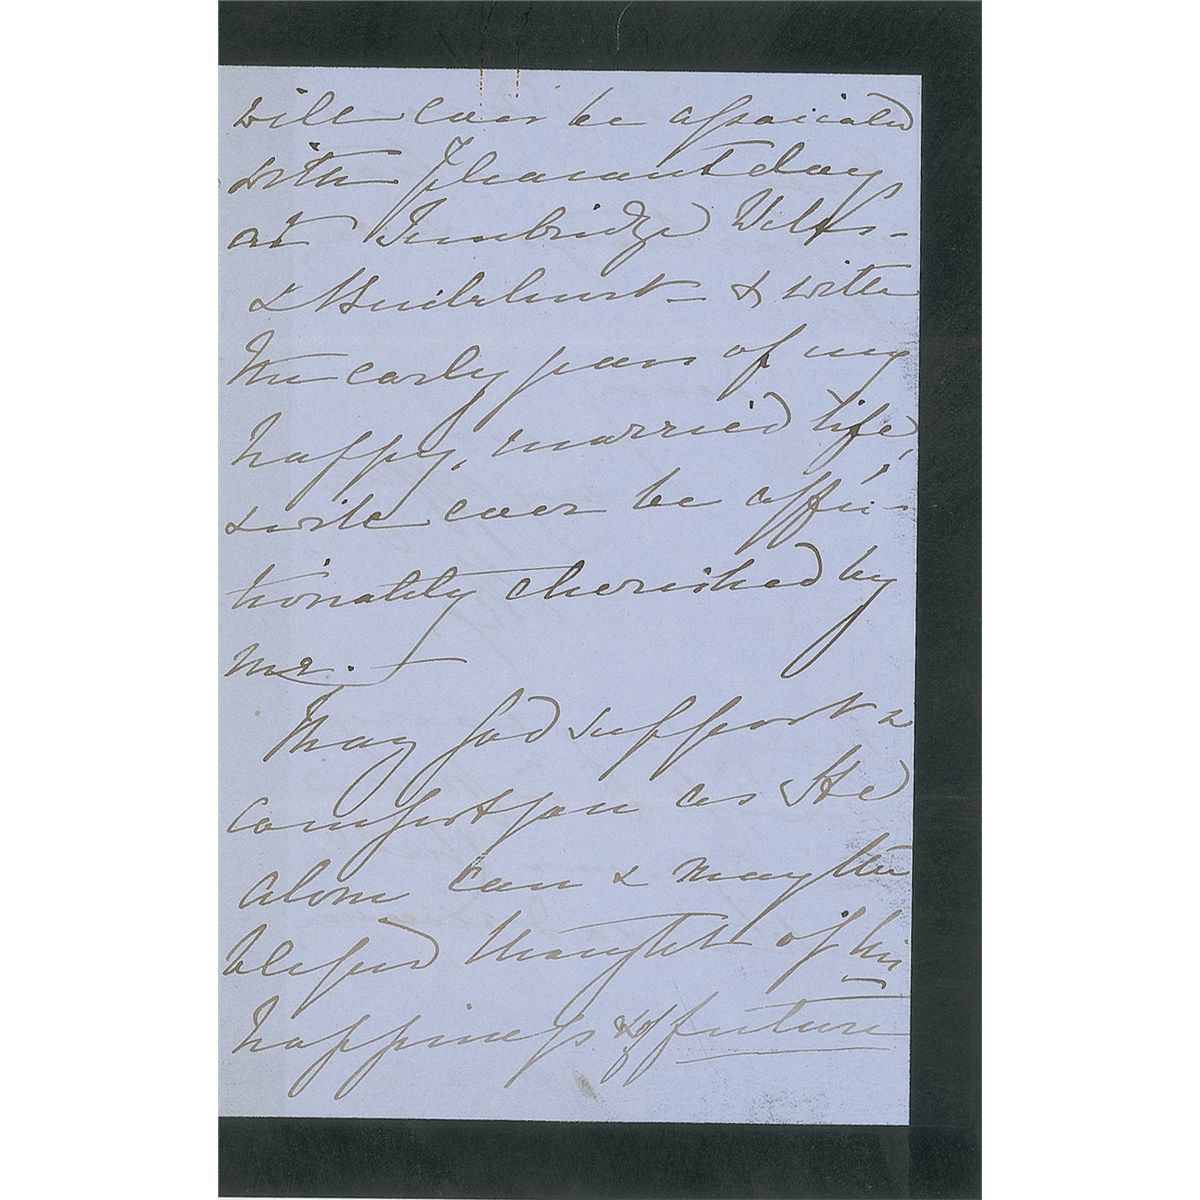 will ever be associated
with pleasant days
at Tunbridge Wells -
& - & with
the early years of my
happy, married life,
& will ever be affec-
tionately cherished by
me. -
May God support &
comfort you as He
alone can & may the
blessed thought of his
happiness & of future